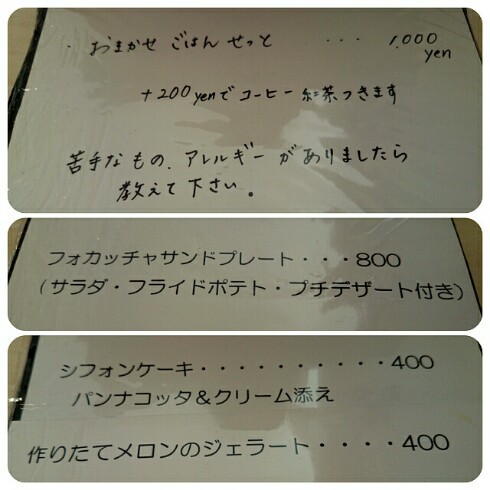 ・おまかせ ごはん せっと ・・・ 1,000 yen
+200yenで コーヒー 紅茶つきます
苦手なもの、アレルギーがありましたら
教えて下さい。
フォカッチャサンドプレート・・・800
(サラダ・フライドポテト・プチデザート付き)
シフォンケーキ・・・・・・・・・・400
パンナコッタ&クリーム添え
作りたてメロンのジェラート・・・・400